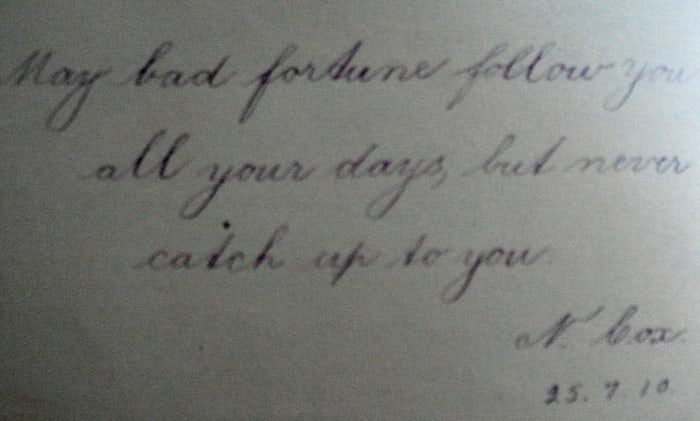 May bad fortune follow you
all your days, but never
catch up to you.
N. Cox.
25.7.10.